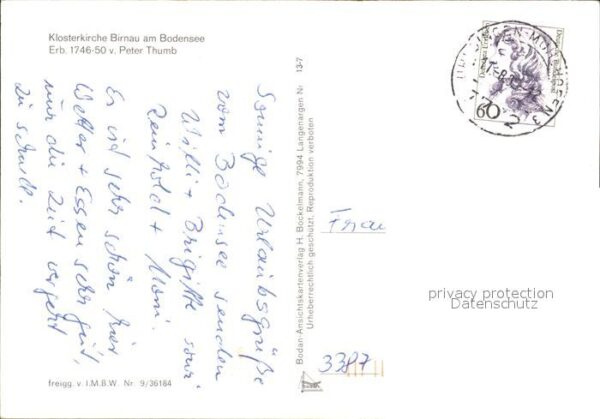 Klosterkirche Birnau am Bodensee
Erb. 1746-50 v. Peter Thumb
Sonnige Urlaubsgrüße
vom Bodensee senden
Willi + Brigitte sowie
Reinhold + Moni.
Es ist sehr schön hier
Wetter + Essen sehr gut,
nur die Zeit vergeht
zu schnell.
freigg. v. I.M.B.W. Nr. 9/36184
Bodan-Ansichtskartenverlag H. Bockelmann, 7994 Langenargen Nr. 13-7
Urheberrechtlich geschützt, Reproduktion verboten
Deutsche Bundespost
60
Frau
privacy protection
Datenschutz
3387